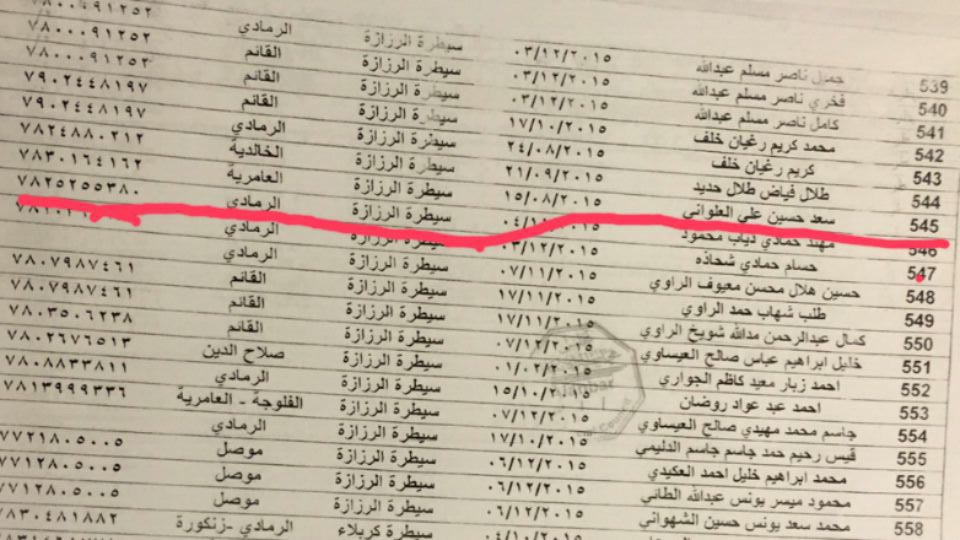 539 جميل ناصر مسلم عبدالله ٠٣/١٢/٢٠١٥ سيطرة الرزازة الرمادي
540 فخري ناصر مسلم عبدالله ٠٣/١٢/٢٠١٥ سيطرة الرزازة القائم ٧٨٠٠٠٩١٢٥٢
541 كامل ناصر مسلم عبدالله ٠٣/١٢/٢٠١٥ سيطرة الرزازة القائم ٧٨٠٠٠٩١٢٥٢
542 محمد كريم رغيان خلف ١٧/١٠/٢٠١٥ سيطرة الرزازة القائم ٧٩٠٢٤٤٨١٩٧
543 كريم رغيان خلف ٢٤/٠٨/٢٠١٥ سيطرة الرزازة الرمادي ٧٩٠٢٤٤٨١٩٧
544 طلال فياض طلال حديد ٢١/٠٩/٢٠١٥ سيطرة الرزازة الخالدية ٧٨٢٤٨٨٠٢١٢
545 سعد حسين علي العلواني ١٥/٠٨/٢٠١٥ سيطرة الرزازة العامرية ٧٨٣٠١٦٤١٦٢
546 مهند حمادي ذياب محمود سيطرة الرزازة الرمادي ٧٨٢٥٢٥٥٣٨٠
547 حسام حمادي شحاذه ٠٣/١٢/٢٠١٥ سيطرة الرزازة الرمادي
548 حسين هلال محسن معيوف الراوي ٠٧/١١/٢٠١٥ سيطرة الرزازة الرمادي
549 طلب شهاب حمد الراوي ١٧/١١/٢٠١٥ سيطرة الرزازة القائم ٧٨٠٧٩٨٧٤٦١
550 كمال عبدالرحمن مدالله شويخ الراوي ١٧/١١/٢٠١٥ سيطرة الرزازة القائم ٧٨٠٧٩٨٧٤٦١
551 خليل ابراهيم عباس صالح العيساوي ٠٧/١٢/٢٠١٥ سيطرة الرزازة القائم ٧٨٠٣٥٠٦٢٣٨
552 احمد زبار معيد كاظم الجواري ٠١/٠٢/٢٠١٥ سيطرة الرزازة صلاح الدين ٧٨٠٢٦٧٦٥١٣
553 احمد عبد عواد روضان ١٥/١٠/٢٠١٥ سيطرة الرزازة الرمادي ٧٨٠٨٨٣٣٨١١
554 جاسم محمد مهيدي صالح العيساوي ٠٧/١٢/٢٠١٥ سيطرة الرزازة الفلوجة - العامرية ٧٨١٣٩٩٩٣٣٦
555 قيس رحيم حمد جاسم جاسم الدليمي ١٧/١٠/٢٠١٥ سيطرة الرزازة الرمادي
556 محمد ابراهيم خليل احمد العكيدي ٠٦/١٢/٢٠١٥ سيطرة الرزازة موصل ٧٧٢١٨٠٥٠٠٥
557 محمود ميسر يونس عبدالله الطائي ٠٦/١٢/٢٠١٥ سيطرة الرزازة موصل ٧٧١٢٨٠٥٠٠٥
558 محمد سعد يونس حسين الشهواني ٠٦/١٢/٢٠١٥ سيطرة الرزازة موصل ٧٧١٢٨٠٥٠٠٥
٠٤/١٠/٢٠١٥ سيطرة كربلاء الرمادي -زنكورة ٧٨٣٠٤٨١٨٨٢